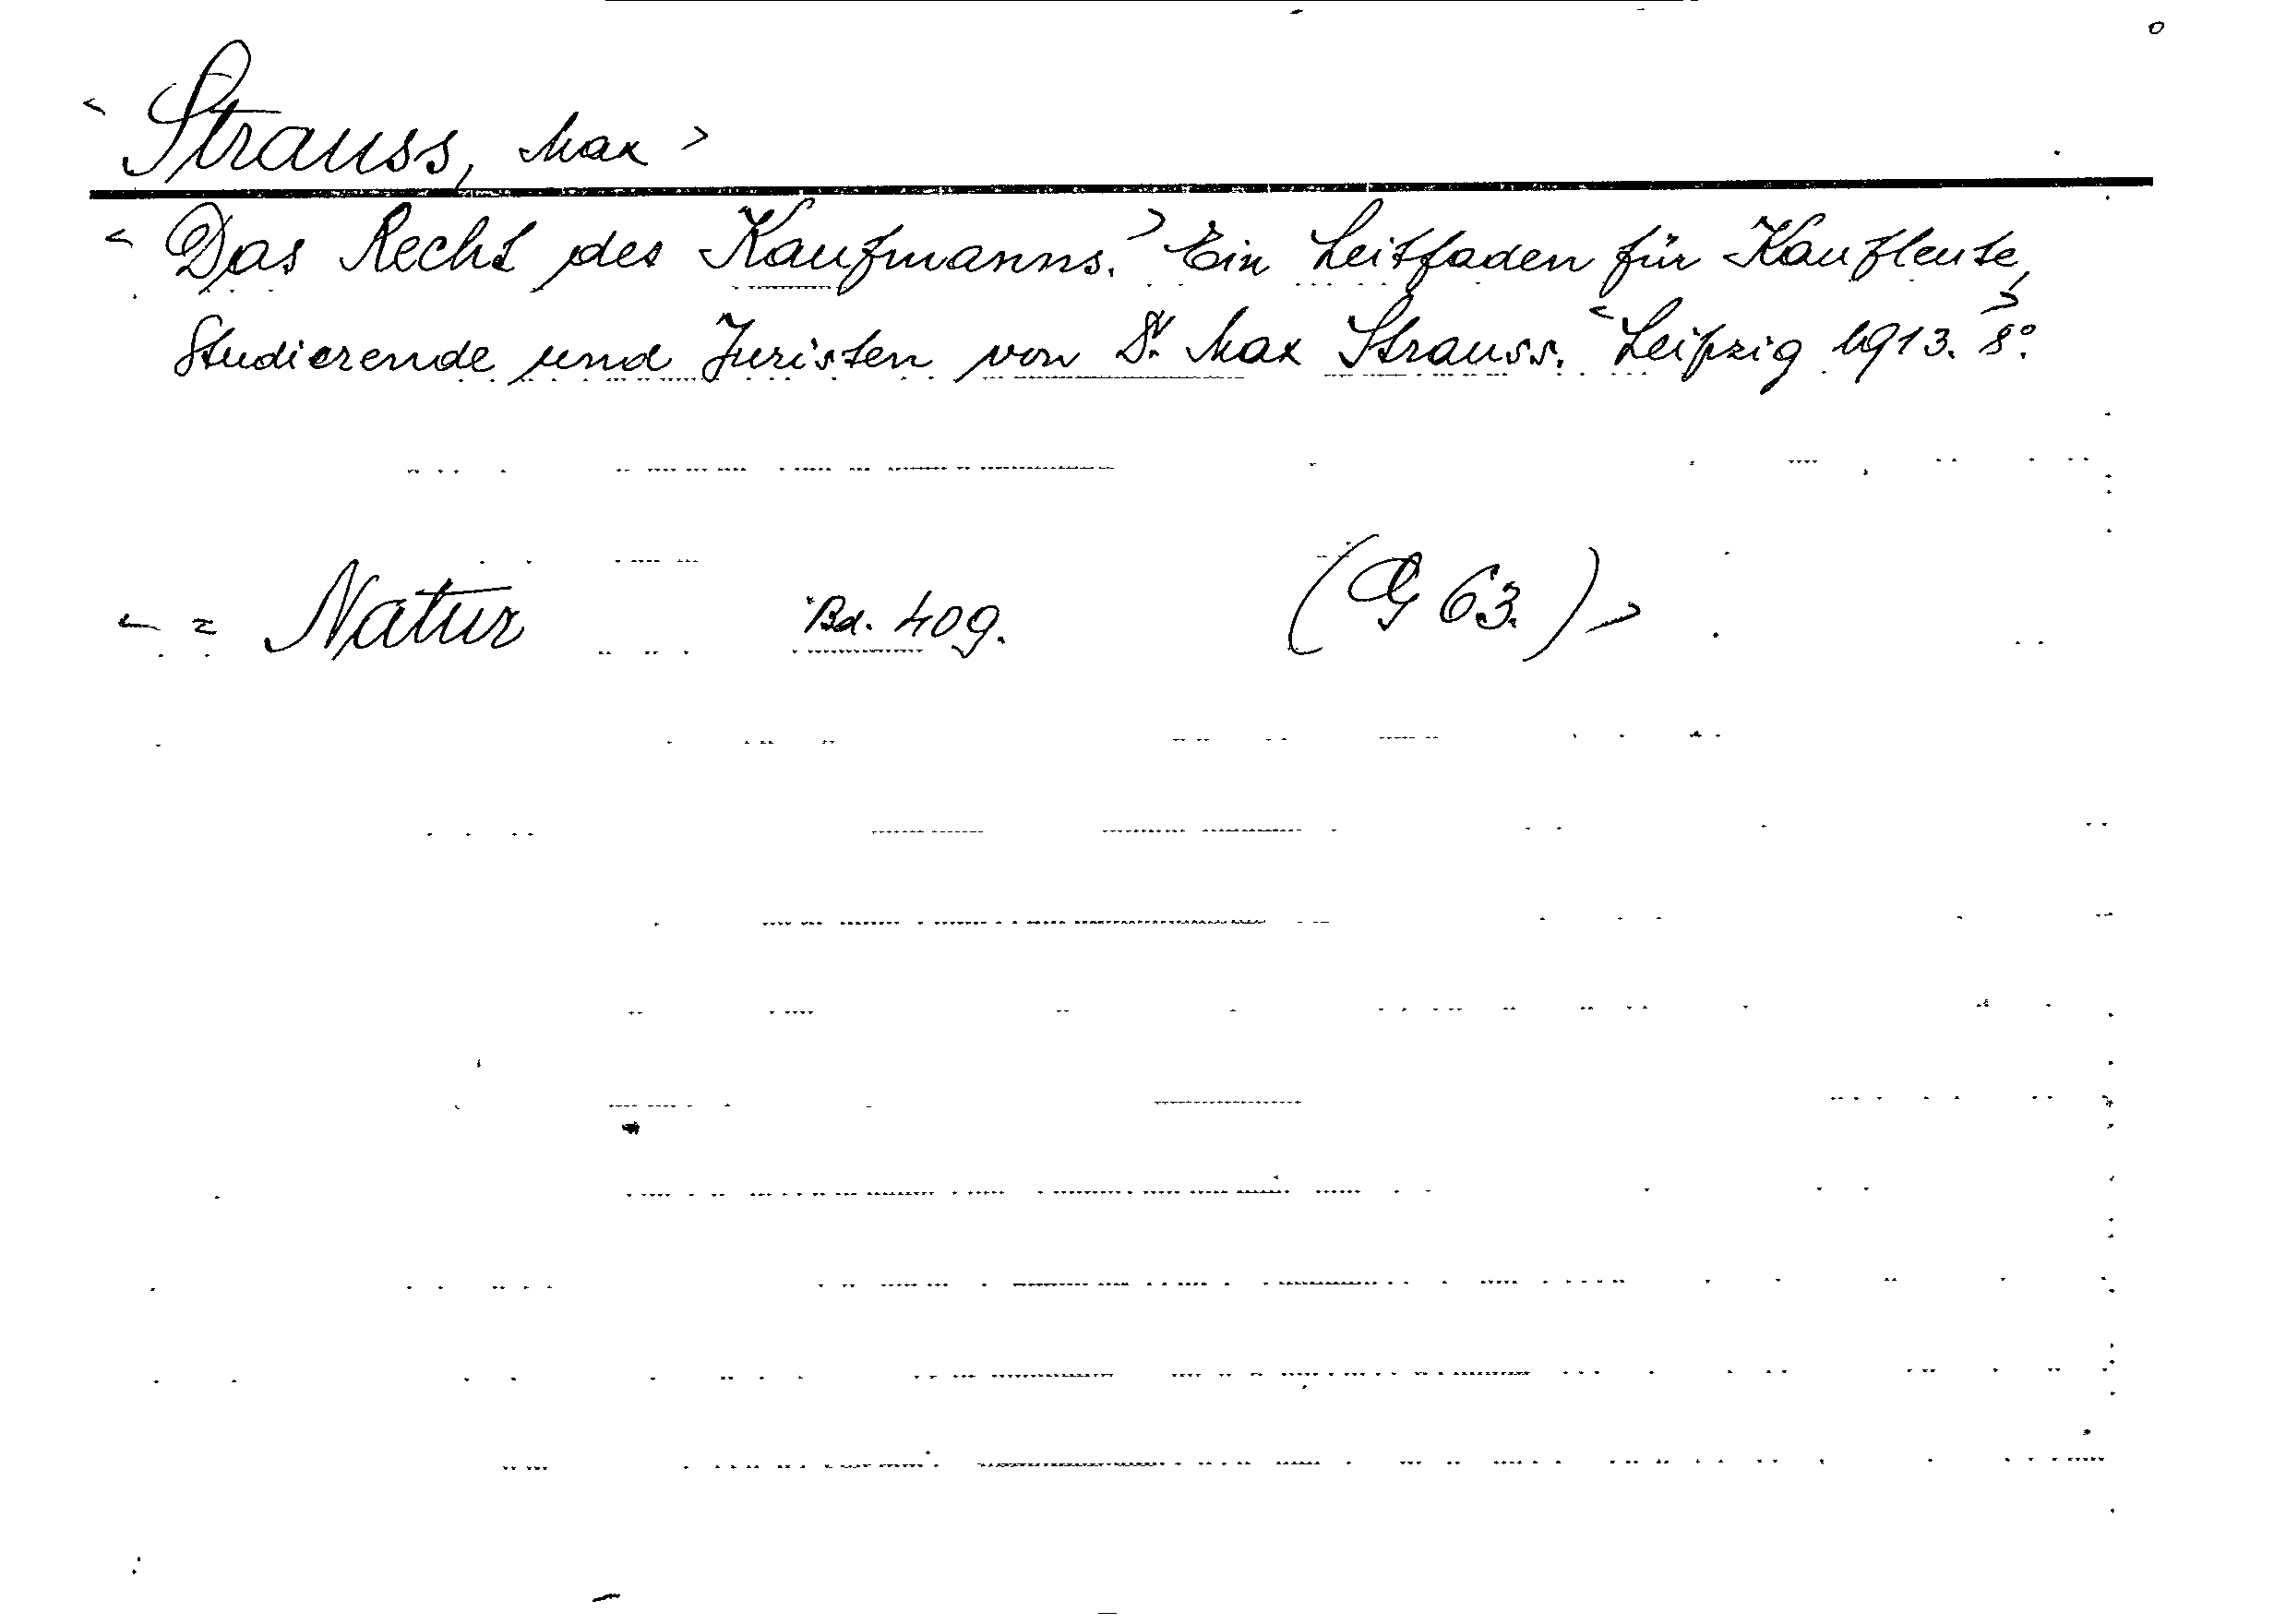 < Strauss, Max >
< Das Recht des Kaufmanns. > Ein Leitfaden für Kaufleute,
Studierende und Juristen von Dr. Max Strauss. < Leipzig 1913. 8°. >
< = Natur Bd. 409. (G 63.) >